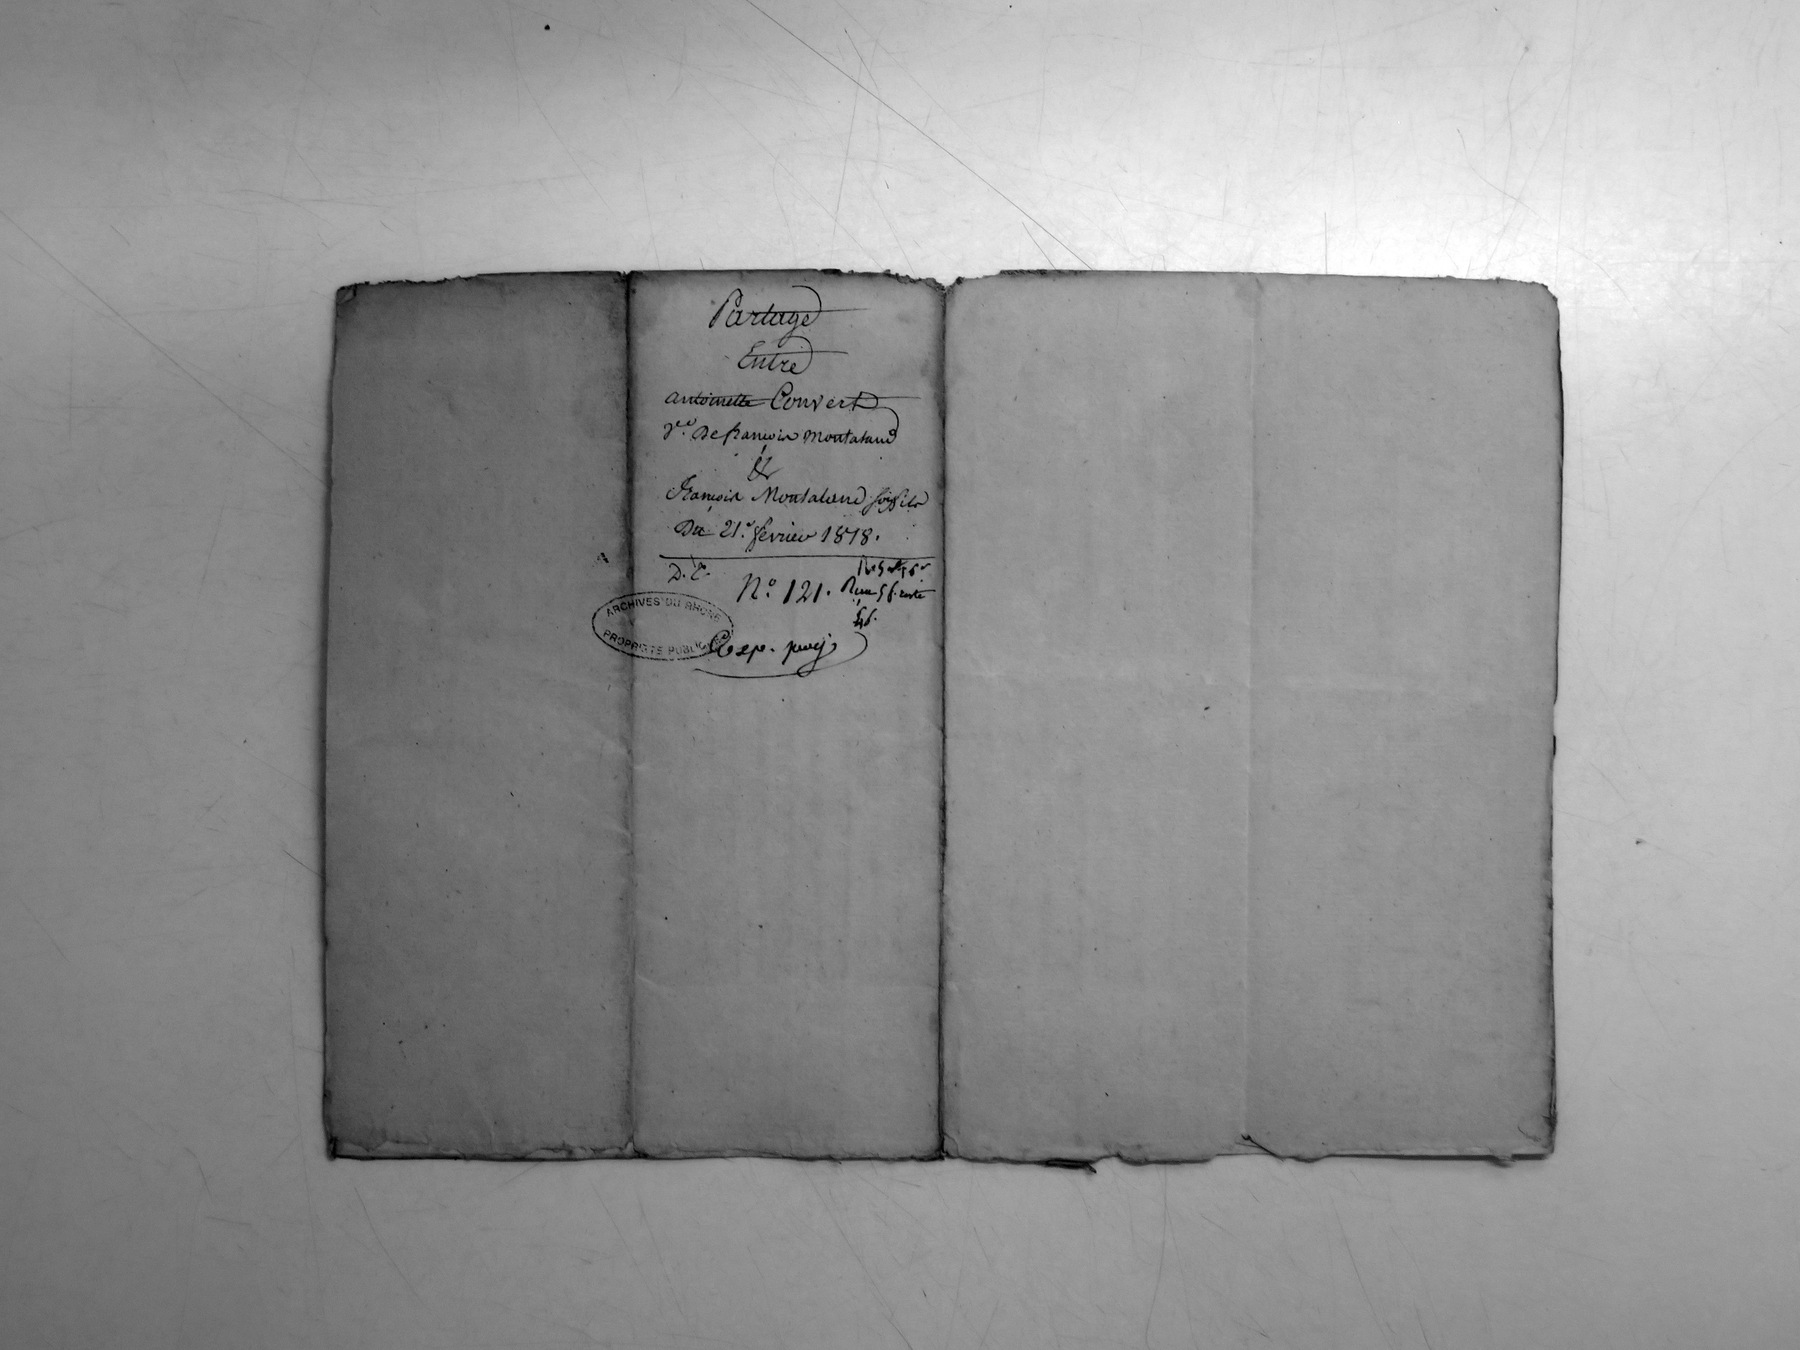 Partage
Entre
antoinette Convert
vve. De françois Montaland
&
françois Montaland son fils
Du 21. fevrier 1818.
D. C.
N.° 121.
ARCHIVES DU RHONE
PROPRIETE PUBLIQUE
Exp.